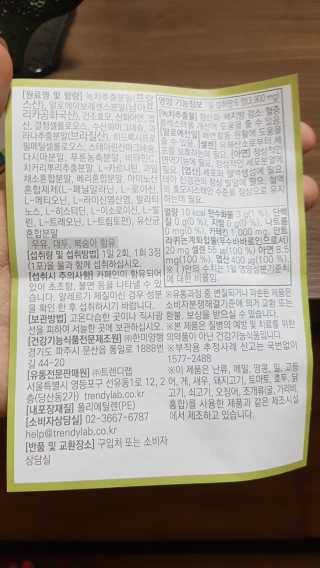 [원료명 및 함량] 녹차추출분말(프랑
스산), 알로에아보레센스분말(남아프
리카공화국산), 건조효모, 산화아연, 덱스트
린, 결정셀룰로오스, 수산화마그네슘, 과
라나추출분말(브라질산), 히드록시프로
필메틸셀룰로오스, 스테아린산마그네슘,
다시마분말, 푸룬농축분말, 비타민C,
치커리뿌리추출분말, L-카르니틴, 과일
채소혼합분말, 베리혼합분말, 아미노산
혼합제제(L-페닐알라닌, L-로이신,
L-메티오닌, L-라이신염산염, 팔라티
노스, L-히스티딘, L-이소로이신, L-발
린, L-트레오닌, L-트립토판), 유산균
혼합분말
우유, 대두, 복숭아 함유
[섭취량 및 섭취방법] 1일 2회, 1회 3정
(1포)을 물과 함께 섭취하십시오.
[섭취시 주의사항] 카페인이 함유되어
있어 초조함, 불면 등을 나타낼 수 있
음. 알레르기 체질이신 경우 성분
을 확인 한 후 섭취하시기 바랍니다.
[보관방법] 고온다습한 곳이나 직사광
선을 피하여 서늘한 곳에 보관하십시오.
[건강기능식품전문제조원] ㈜한미양행
경기도 파주시 문산읍 통일로 1888번
길 44-20
[유통전문판매원] ㈜트렌디랩
서울특별시 영등포구 선유동1로 12, 2
층(당산동2가) trendylab.co.kr
[내포장재질] 폴리에틸렌(PE)
[소비자상담실] 02-3667-6787
help@trendylab.co.kr
[반품 및 교환장소] 구입처 또는 소비자
상담실
영양·기능정보
1일 섭취량
[녹차추출물] 항산화·체지방 감소·혈중
콜레스테롤 개선에 도움을 줄 수 있음
[알로에전잎] 배변활동 원활에 도움을
줄 수 있음 [셀렌] 유해산소로부터 세
포를 보호하는데 필요 [아연] 정상적인
면역기능에 필요, 정상적인 세포분열에
필요 [엽산] 세포와 혈액생성에 필요,
태아 신경관의 정상 발달에 필요, 혈액
의 호모시스테인 수준을 정상으로 유지
하는데 필요
열량 10 kcal 탄수화물 3 g(1 %), 단백
질 0 g(0 %), 지방 0 g(0 %), 나트륨
0 mg(0 %), 카테킨 mg, 안트
라퀴논계화합물(무수바바로인으로서)
20 mg 셀렌 55 μg(100 %) 아연 8.5
mg(100 %), 엽산 400 μg(100 %),
※( )안의 수치는 1일 영양성분기준치
에 대한 비율임.
※유통과정 중 변질되거나 파손된 제품은
소비자분쟁해결기준에 의거 교환 또는
환불, 보상을 받으실 수 있습니다.
※본 제품은 질병의 예방 및 치료를 위한
의약품이 아닌 건강기능식품입니다.
※부작용 추정사례 신고는 국번없이
1577-2488
※이 제품은 난류, 메밀, 땅콩, 밀, 고등
어, 게, 새우, 돼지고기, 토마토, 호두, 닭
고기, 쇠고기, 오징어, 조개류(굴, 가리비,
홍합)를 사용한 제품과 같은 제조시설
에서 제조하고 있습니다.